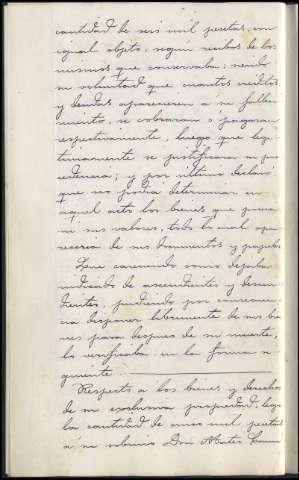 cantidad de seis mil pesetas, con
igual objeto, según recibos de los
mismos que conservaba; siendo
su voluntad que cuantos créditos
y deudas aparecieren a su falle-
cimiento, se cobraran o pagaran
respectivamente, luego que legi-
timamente se justificara su pro-
cedencia; y por último declaró
que no podía determinar en
aquel acto los bienes que poseia
ni sus valores, todo lo cual apa-
recería de sus documentos y papeles
Que careciendo como dejaba
indicado de ascendientes y descen-
dientes, pudiendo por consecuen-
cia disponer libremente de sus bie-
nes para despues de su muerte,
lo verificaba en la forma si-
guiente
Respecto a los bienes y derechos
de su exclusiva propiedad, lega
la cantidad de cinco mil pesetas
a su sobrino Don Mateo